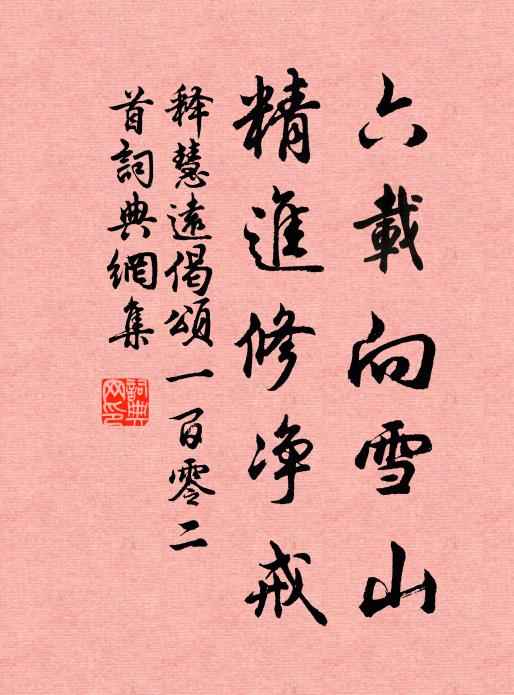 六載向雪山
精進修净戒
释慧遠偈頌一百零二
首詞典網集
詞典网印